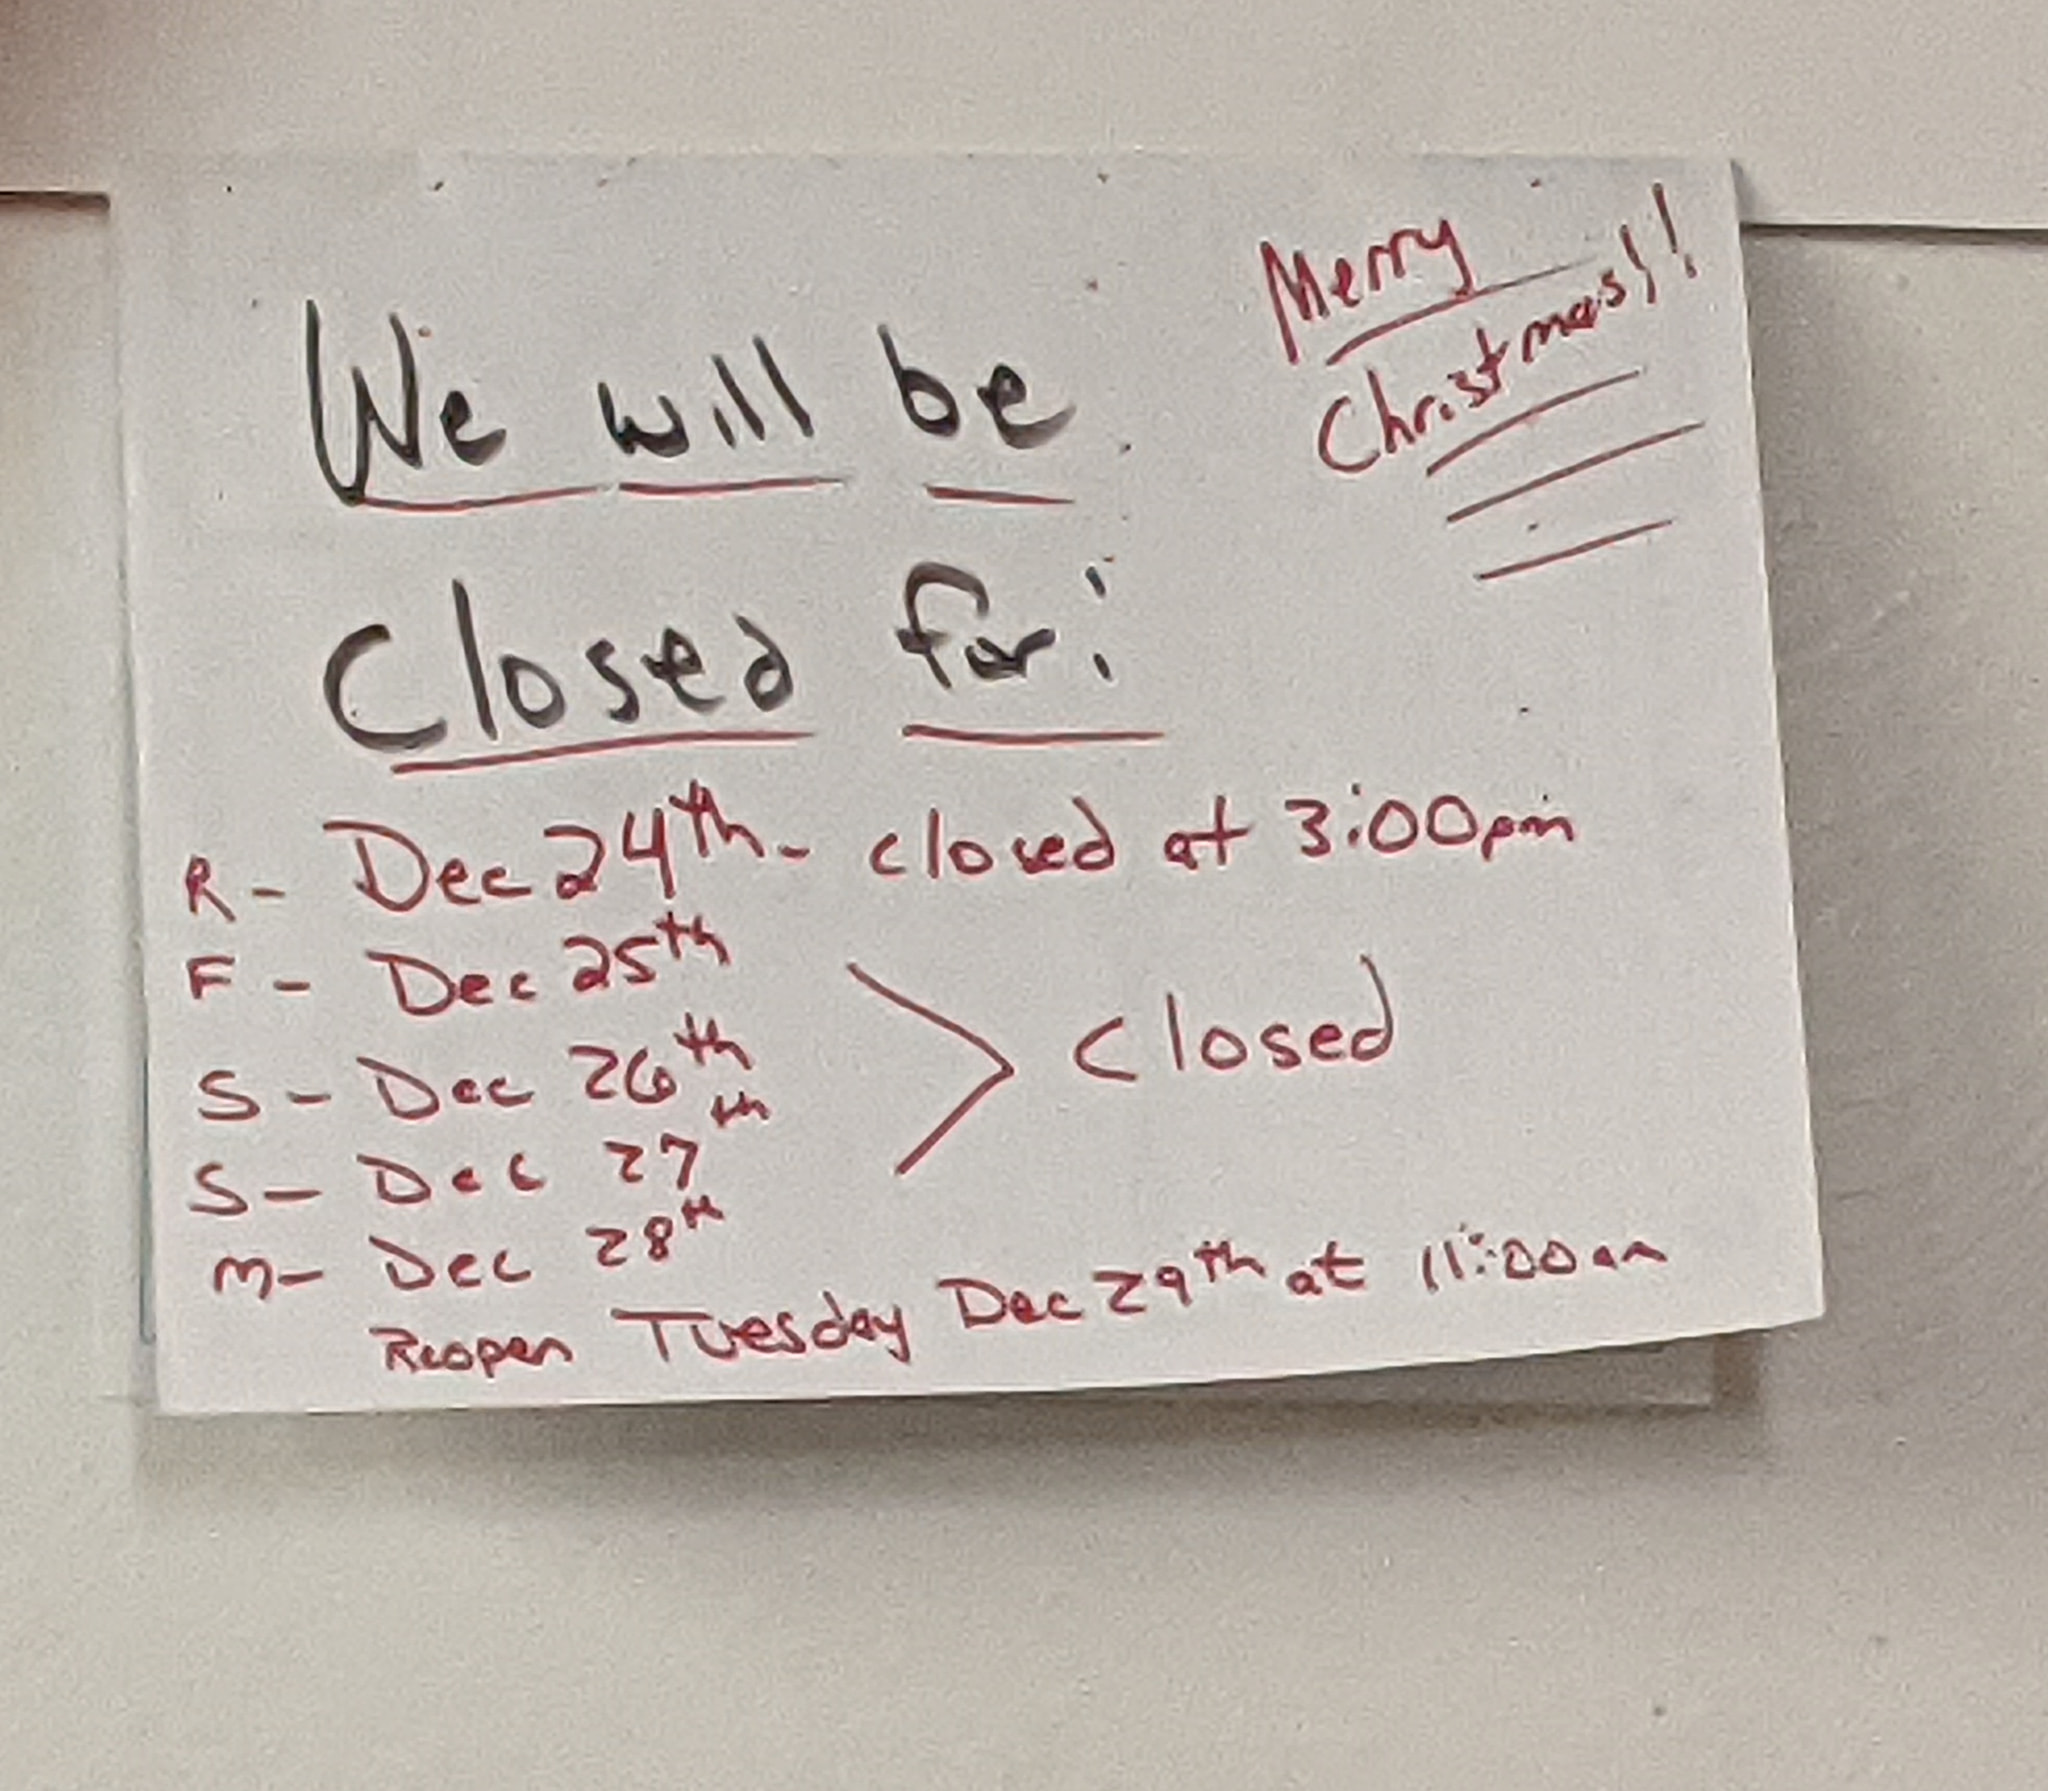 Merry
Christmas!!
We will be
Closed for:
R - Dec 24th - closed at 3:00pm
F - Dec 25th
S - Dec 26th
S - Dec 27th
M - Dec 28th
Closed
Reopen Tuesday Dec 29th at 11:00am